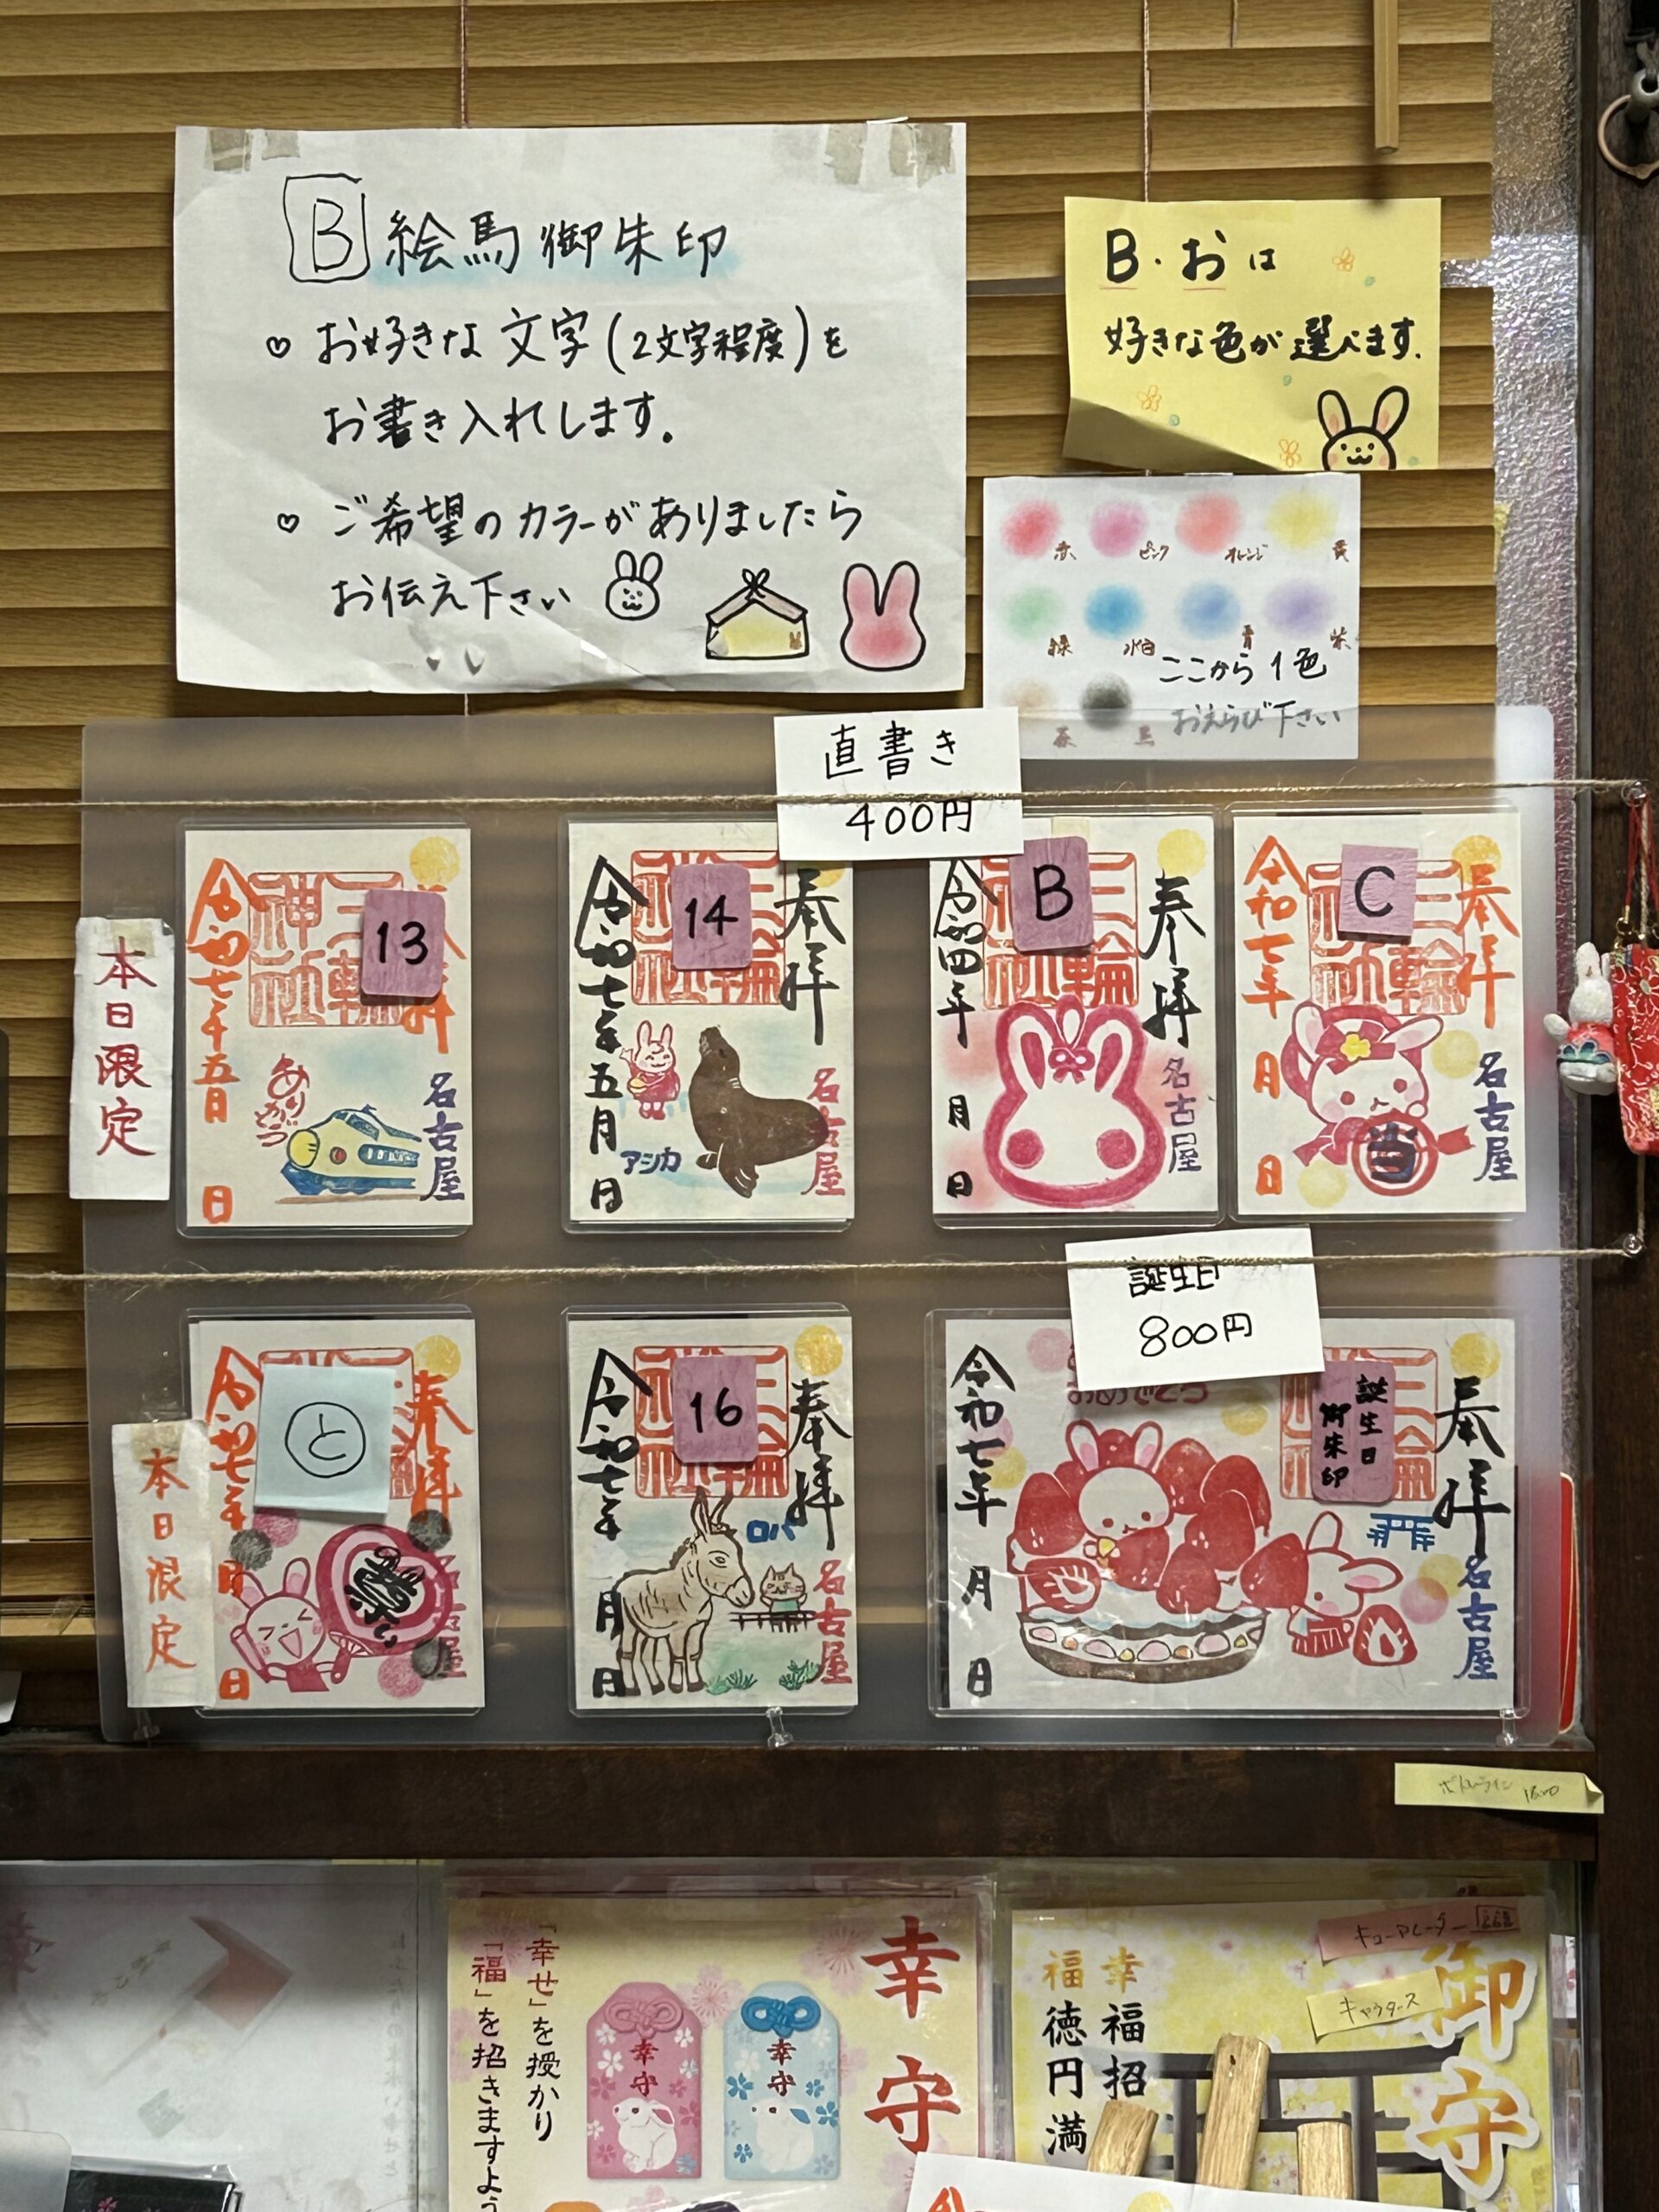 B 絵馬御朱印
♡ お好きな文字(2文字程度)を
お書き入れします。
♡ ご希望のカラーがありましたら
お伝え下さい
B・おは
好きな色が選べます.
赤 ピンク オレンジ 黄
緑 水色 青 紫
茶 黒
ここから1色
おえらび下さい
直書き
400円
本日限定
13
令和七年五月 日
ありがとう
名古屋
14
奉拝
令和七年五月 日
アシカ
名古屋
B
奉拝
令和四年 月 日
名古屋
C
奉拝
令和七年 月 日
名古屋
本日限定
と
奉拝
令和七年 月 日
16
奉拝
令和七年 月 日
ロバ
名古屋
誕生日
800円
誕生日
御朱印
奉拝
令和七年 月 日
名古屋
幸守
「幸せ」を授かり
「福」を招きますよう
幸守
幸守
御守
幸福招
福徳円満
キャラクターズ